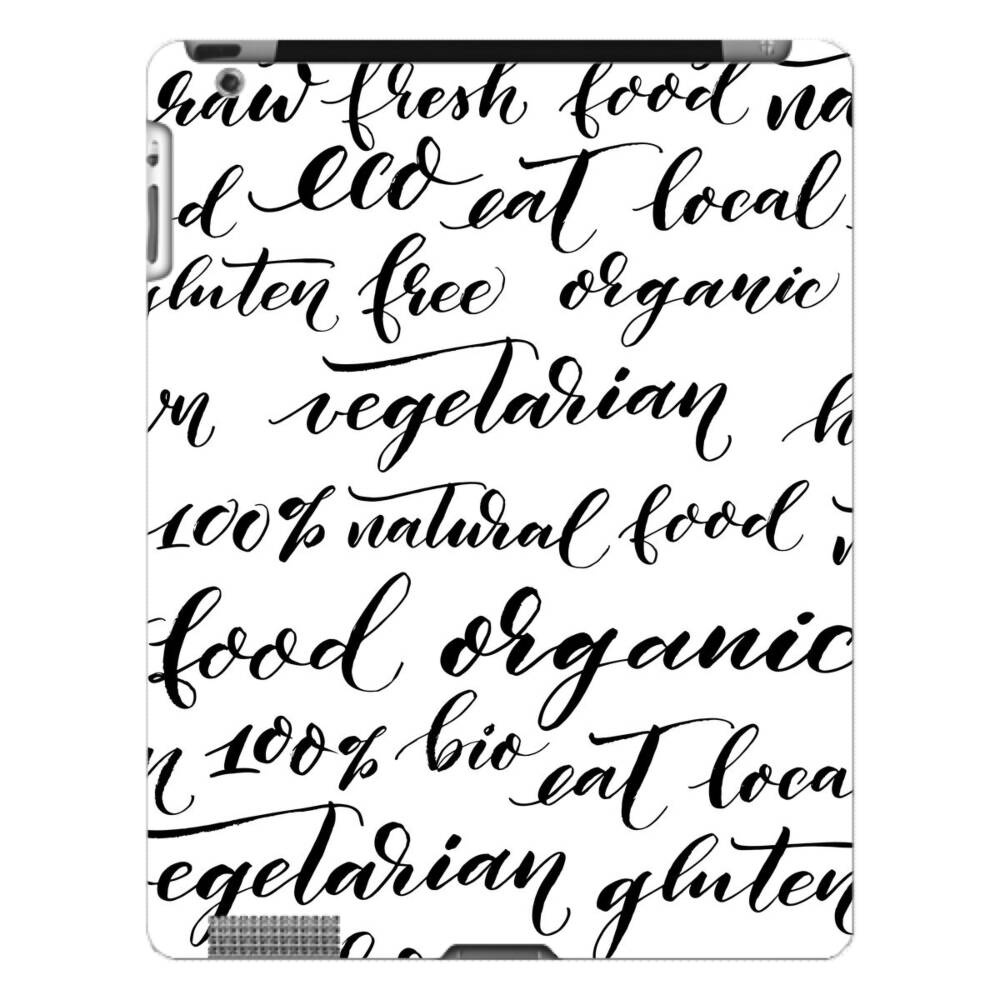 raw fresh food na
d eco eat local
gluten free organic
wn vegetarian h
100% natural food
food organic
n 100% bio eat loca
egetarian gluten